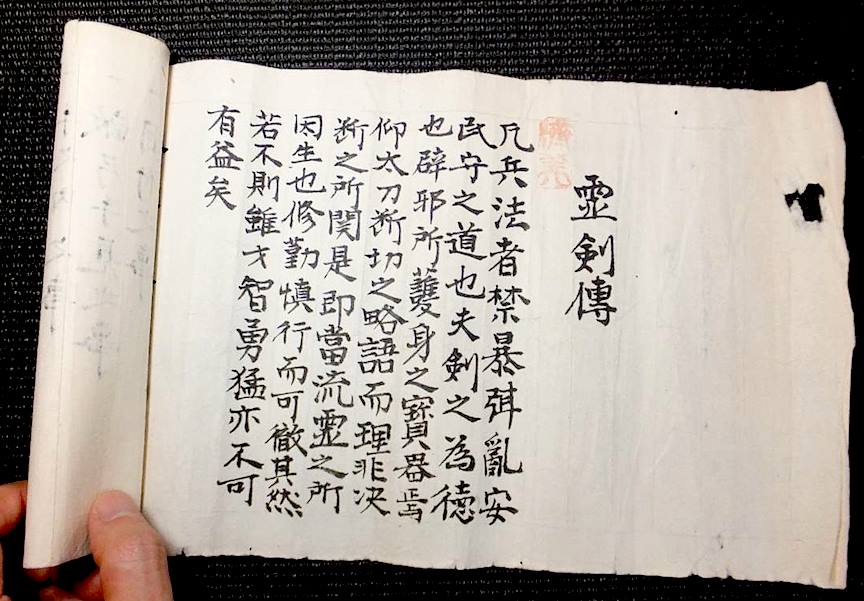 霊剣傳
凡兵法者禁暴弭亂安
民守之道也夫剣之為徳
也辟邪所護身之寶器焉
仰太刀断切之略語而理非决
断之所関是即當流霊之所
因生也修勤慎行而可徹其然
若不則雖才智勇猛亦不可
有益矣